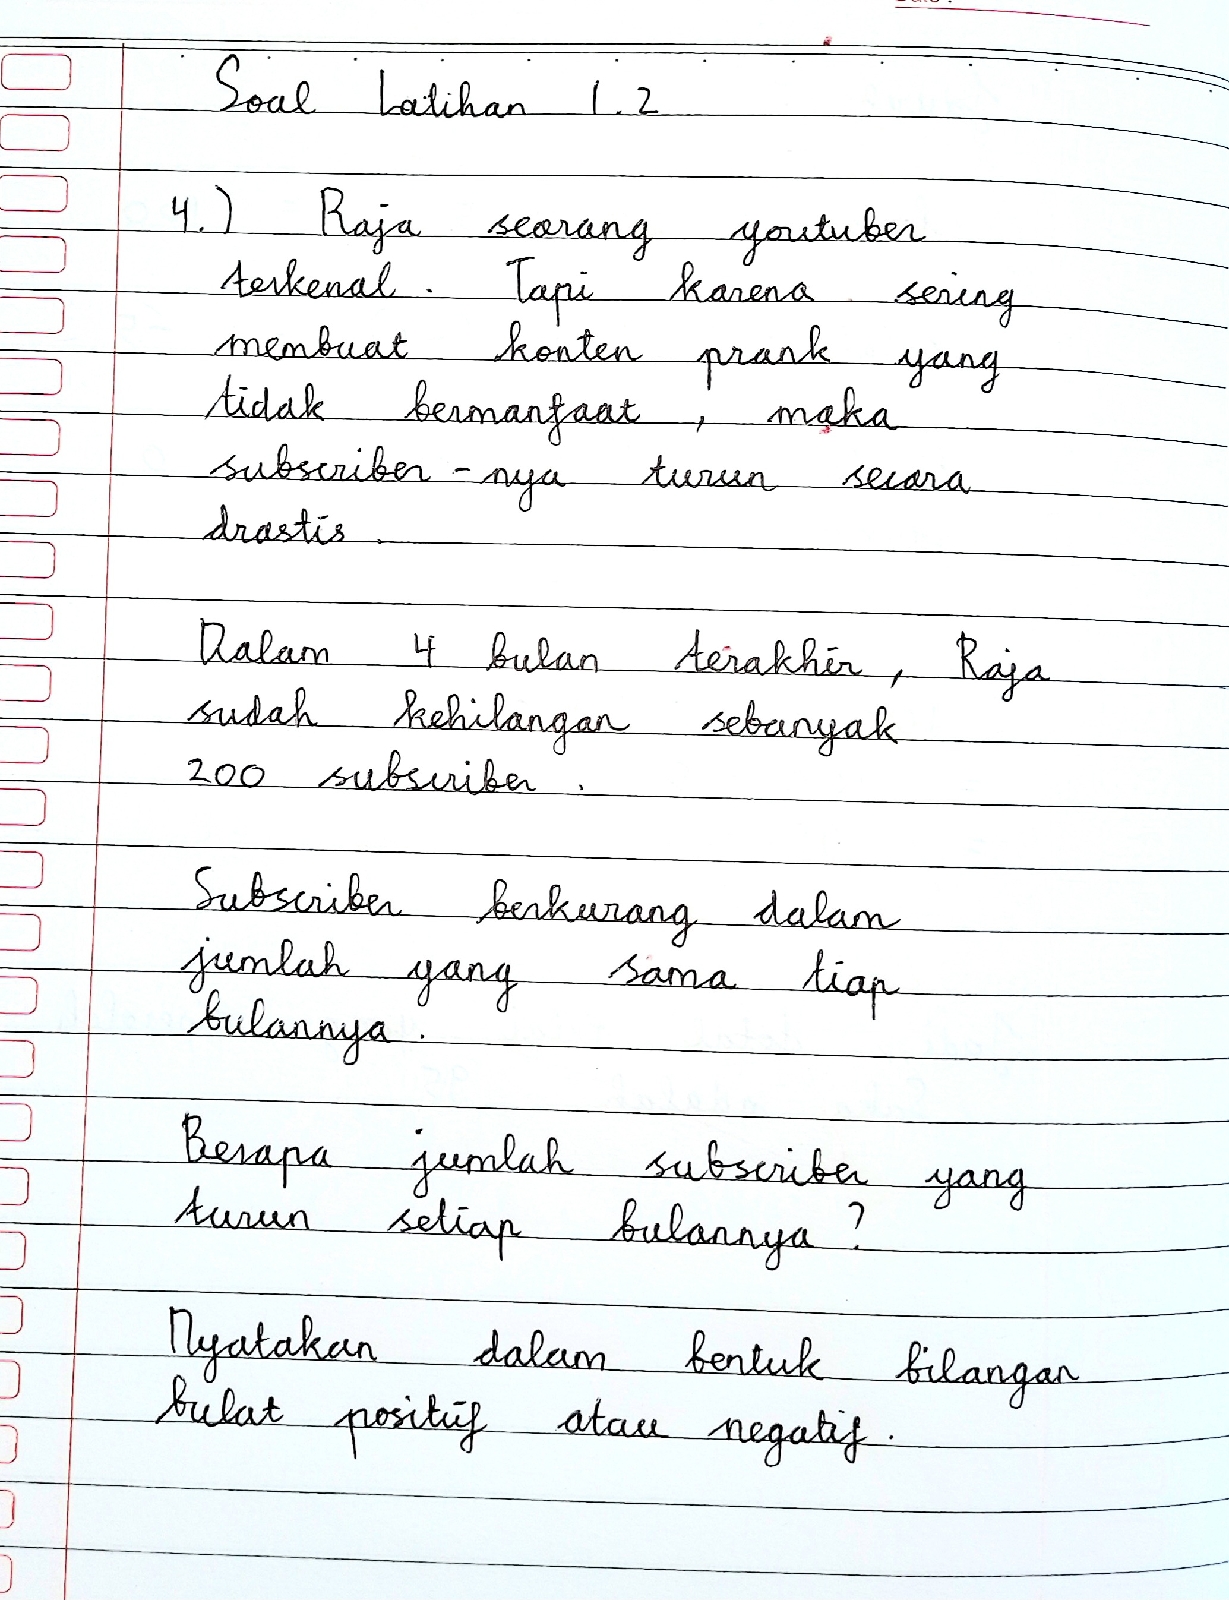 Soal Latihan 1.2
4.) Raja seorang youtuber
terkenal. Tapi karena sering
membuat konten prank yang
tidak bermanfaat, maka
subscriber-nya turun secara
drastis.
Dalam 4 bulan terakhir, Raja
sudah kehilangan sebanyak
200 subscriber.
Subscriber berkurang dalam
jumlah yang sama tiap
bulannya.
Berapa jumlah subscriber yang
turun setiap bulannya?
Nyatakan dalam bentuk bilangan
bulat positif atau negatif.